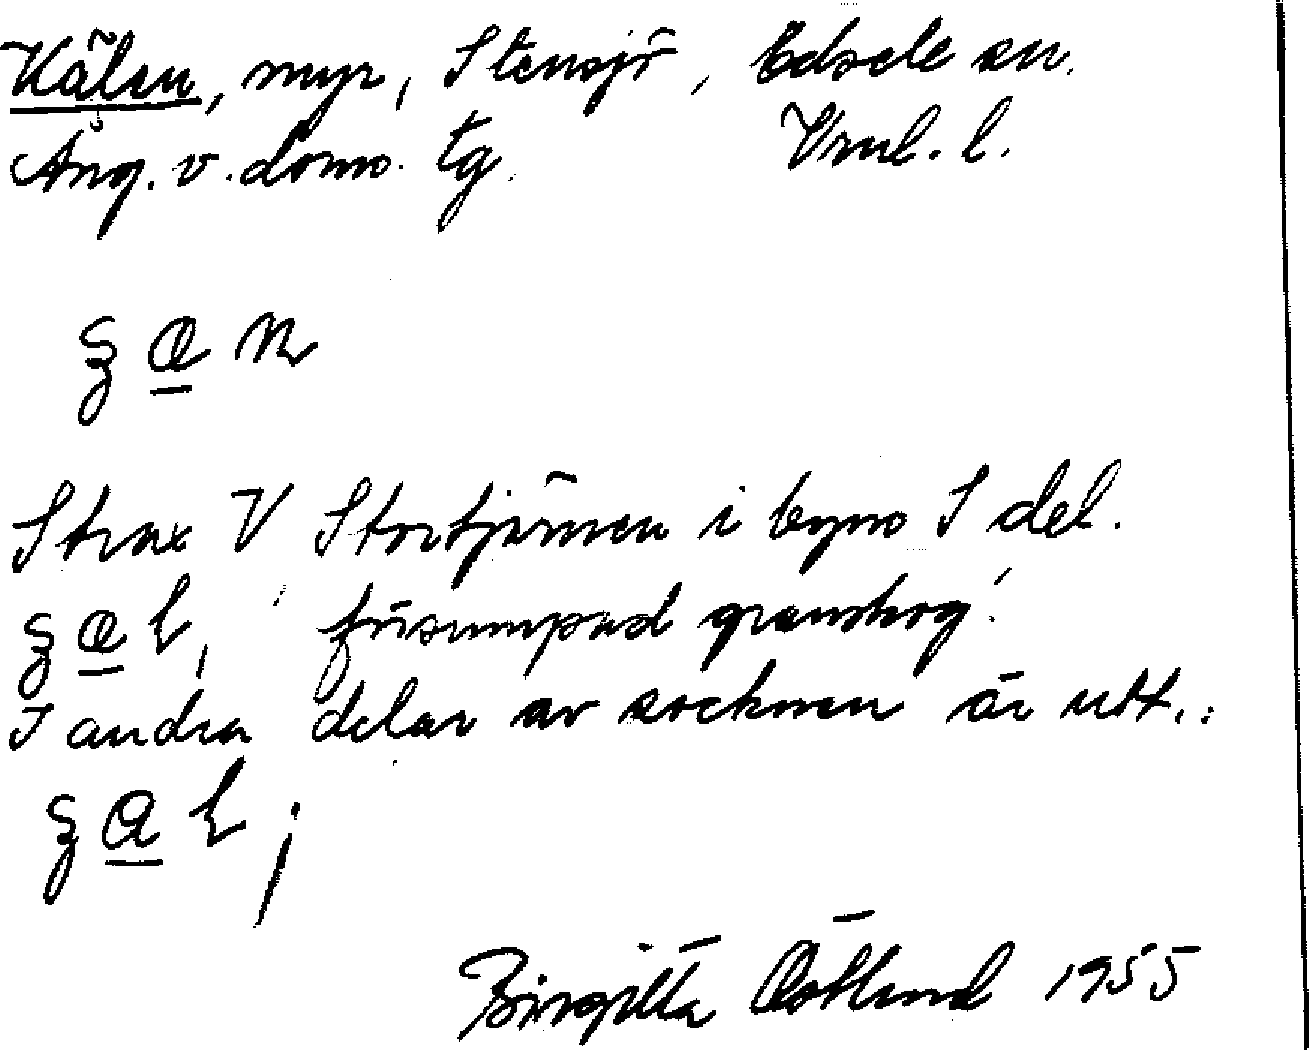 Kälen, myr, Stensjö, Edsele sn.
Ång. v. doms. tg. Vrml. l.
Strax V Stortjärnen i byns S del.
'försumpad granskog.'
I andra delar av socknen är utt.:
Birgitta Östlund 1955